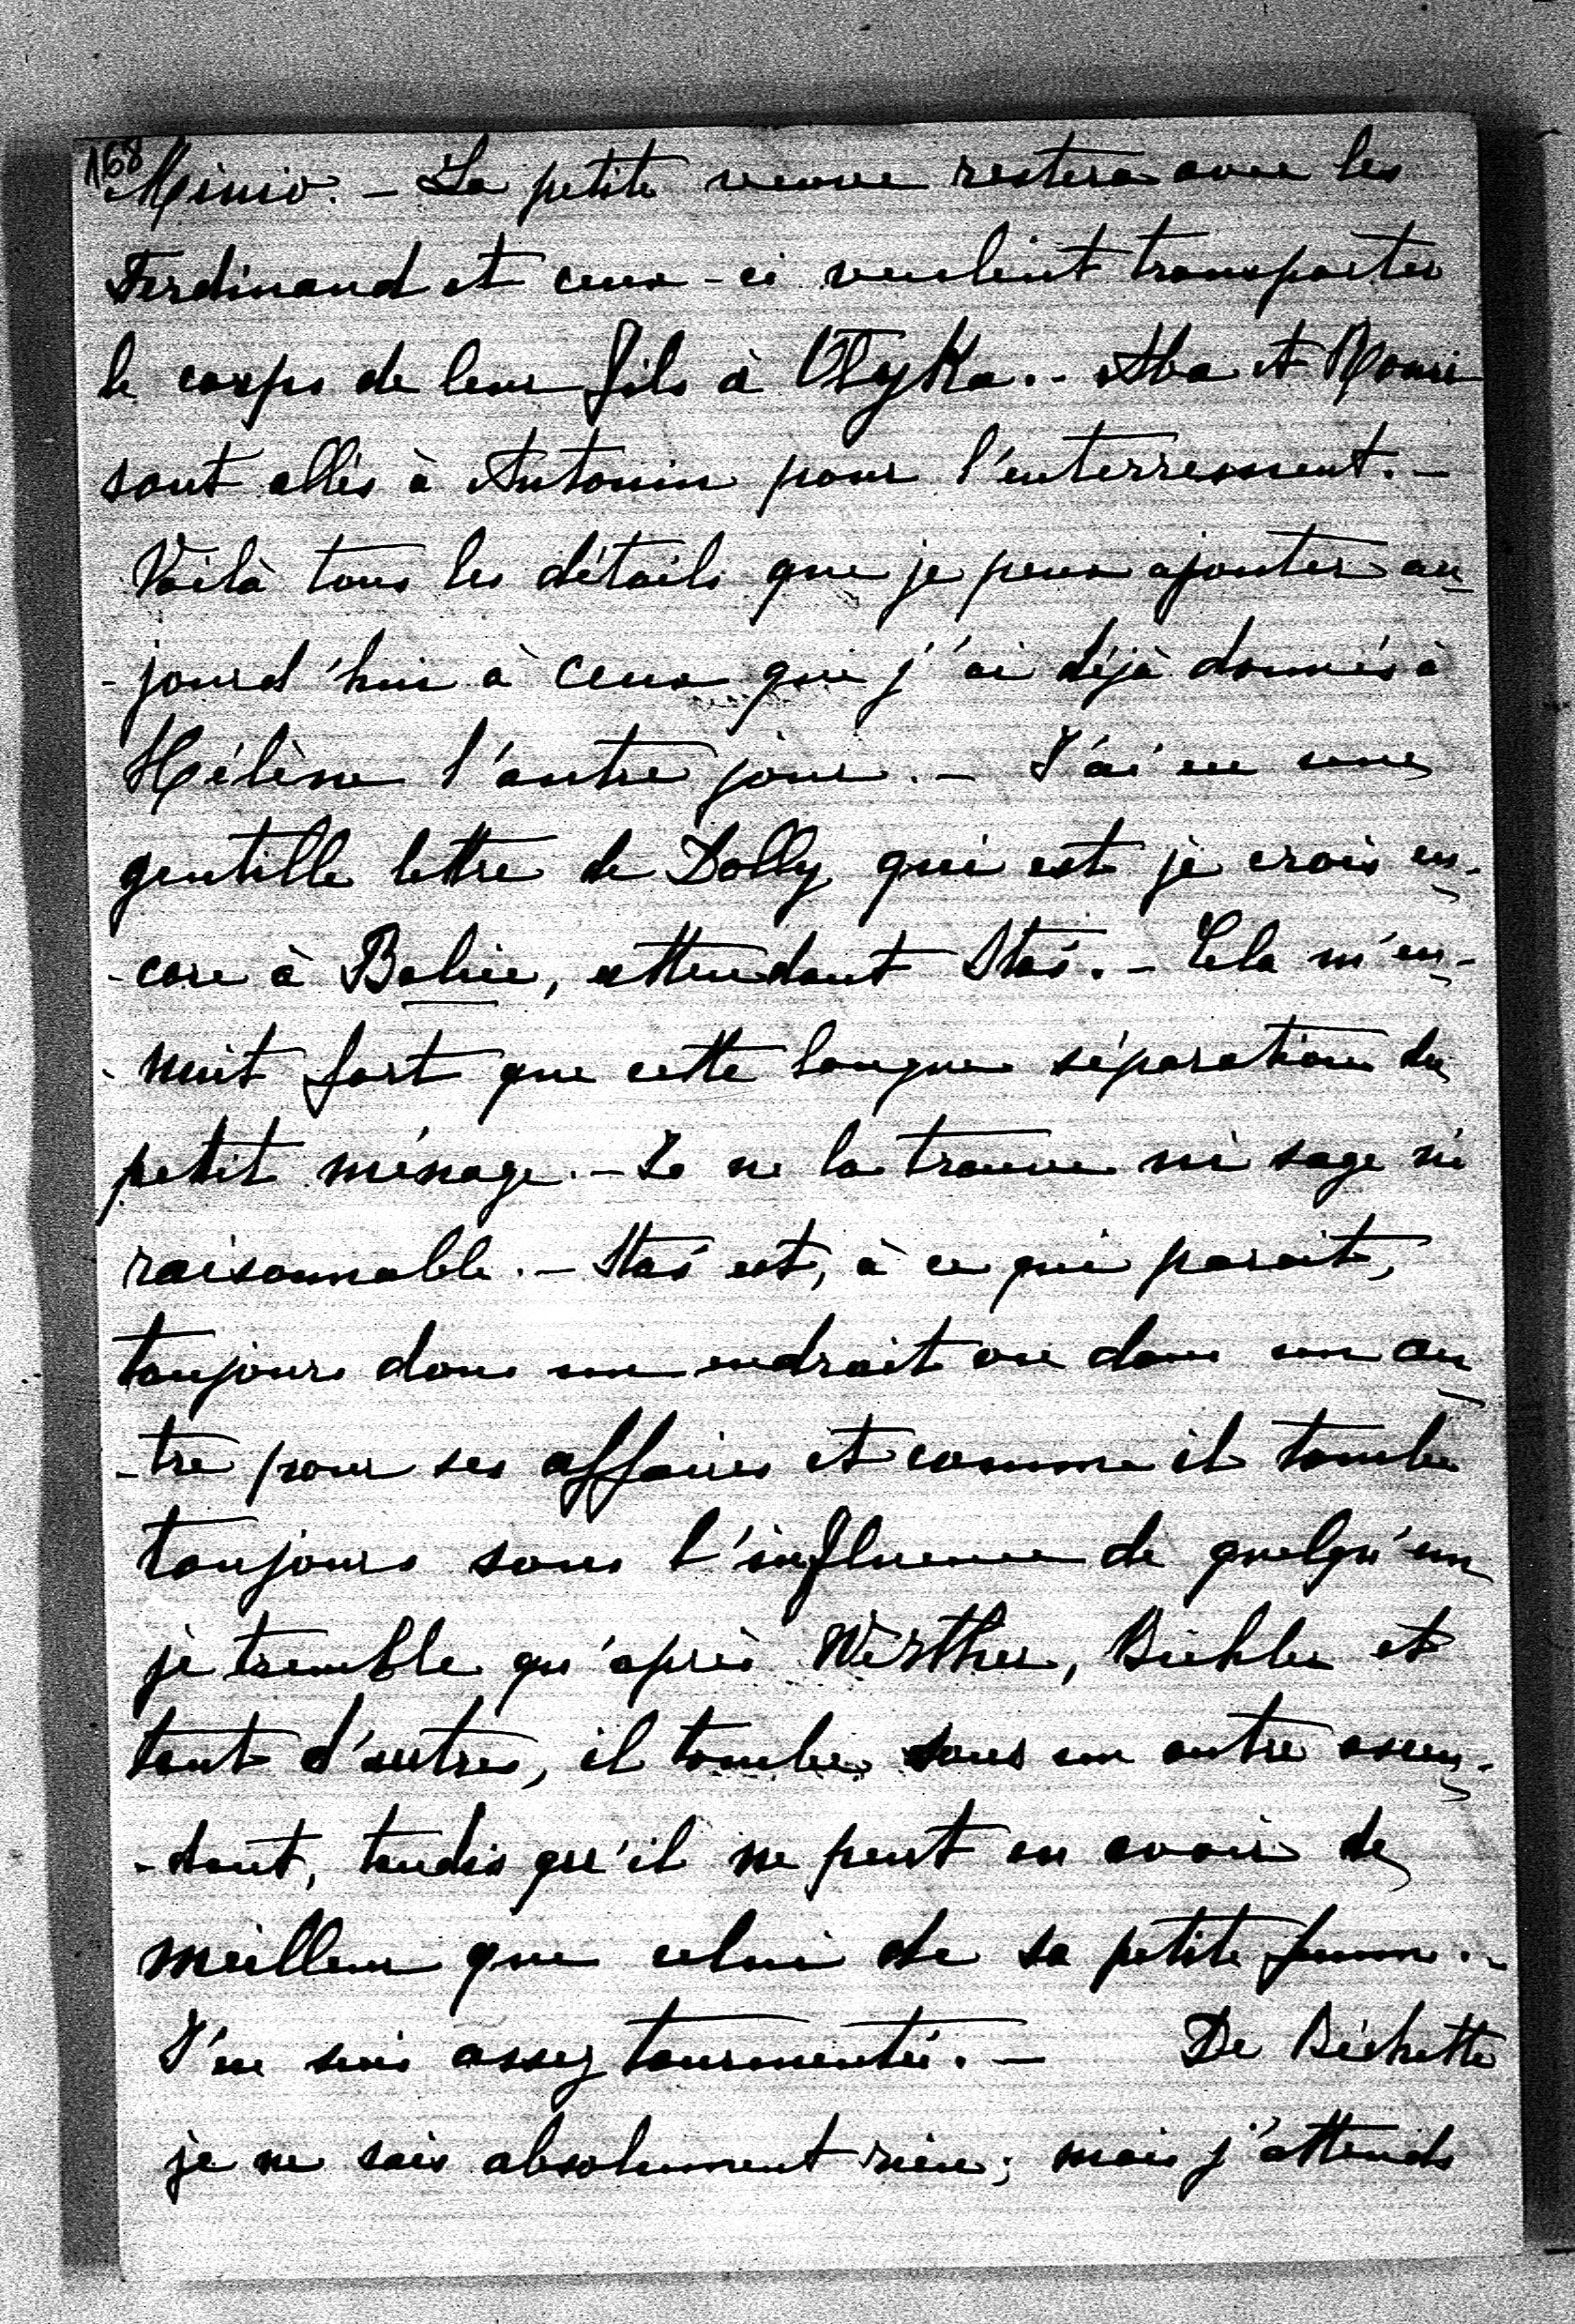 168
Minio. - La petite veuve restera avec les
Ferdinand et ceux-ci veulent transporter
le corps de leur fils à Olyka. - Aba et Mouri
sont allés à Antonin pour l'enterrement. -
Voilà tous les détails que je peux ajouter au-
-jourd'hui à ceux que j'ai déjà donnés à
Hélène l'autre jour. - J'ai eu une
gentille lettre de Dolly qui est je crois en-
-core à Balice, attendant Staś. - Cela m'en-
-nuit fort que cette longue séparation du
petit ménage. - Je ne la trouve ni sage ni
raisonnable. - Staś est, à ce qui parait,
toujours dans un endroit ou dans un au-
-tre pour ses affaires et comme il tombe
toujours sous l'influence de quelqu'un
je tremble qu'après Werther, Biehler et
tant d'autres, il tombe sous un autre ascen-
-dant, tandis qu'il ne peut en avoir de
meilleur que celui de sa petite femme. -
J'en suis assez tourmentée. - De Bichette
je ne sais absolument rien; mais j'attends